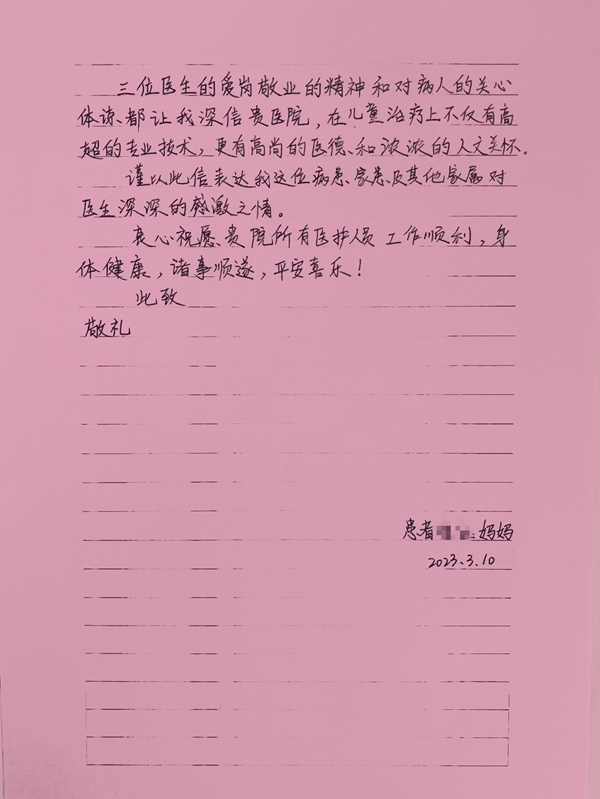 三位医生的爱岗敬业的精神和对病人的关心
体谅、都让我深信贵医院，在儿童治疗上不仅有高
超的专业技术，更有高尚的医德、和浓浓的人文关怀．
谨以此信表达我这位病患、家患及其他家属对
医生深深的感激之情。
衷心祝愿、贵院所有医护人员工作顺利，身
体健康，诸事顺遂，平安喜乐！
此致
敬礼
患者 妈妈
2023.3.10